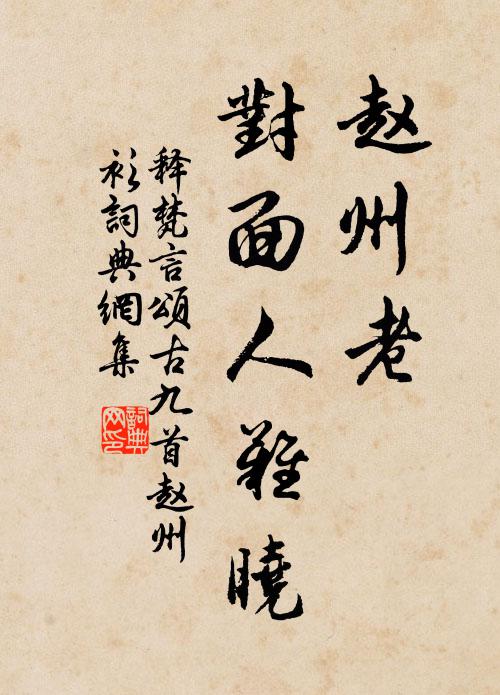 赵州老
對面人難曉
释梵言頌古九首赵州
衫詞典網集
詞典网印